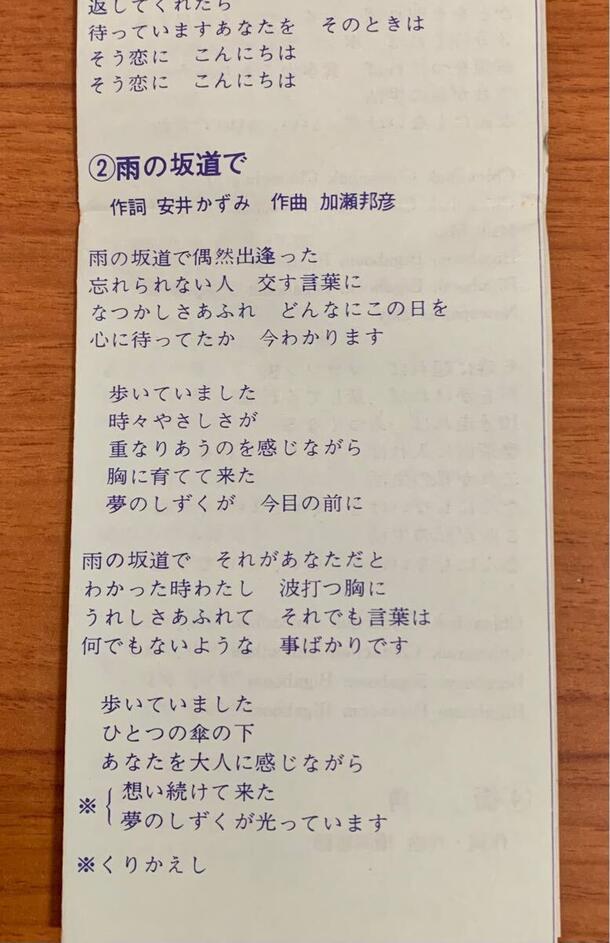 返してくれたら
待っていますあなたを　そのときは
そう恋に　こんにちは
そう恋に　こんにちは
②雨の坂道で
作詞 安井かずみ　作曲 加瀬邦彦
雨の坂道で偶然出逢った
忘れられない人　交す言葉に
なつかしさあふれ　どんなにこの日を
心に待ってたか　今わかります
歩いていました
時々やさしさが
重なりあうのを感じながら
胸に育てて来た
夢のしずくが　今目の前に
雨の坂道で　それがあなただと
わかった時わたし　波打つ胸に
うれしさあふれて　それでも言葉は
何でもないような　事ばかりです
歩いていました
ひとつの傘の下
あなたを大人に感じながら
※ 想い続けて来た
夢のしずくが光っています
※くりかえし